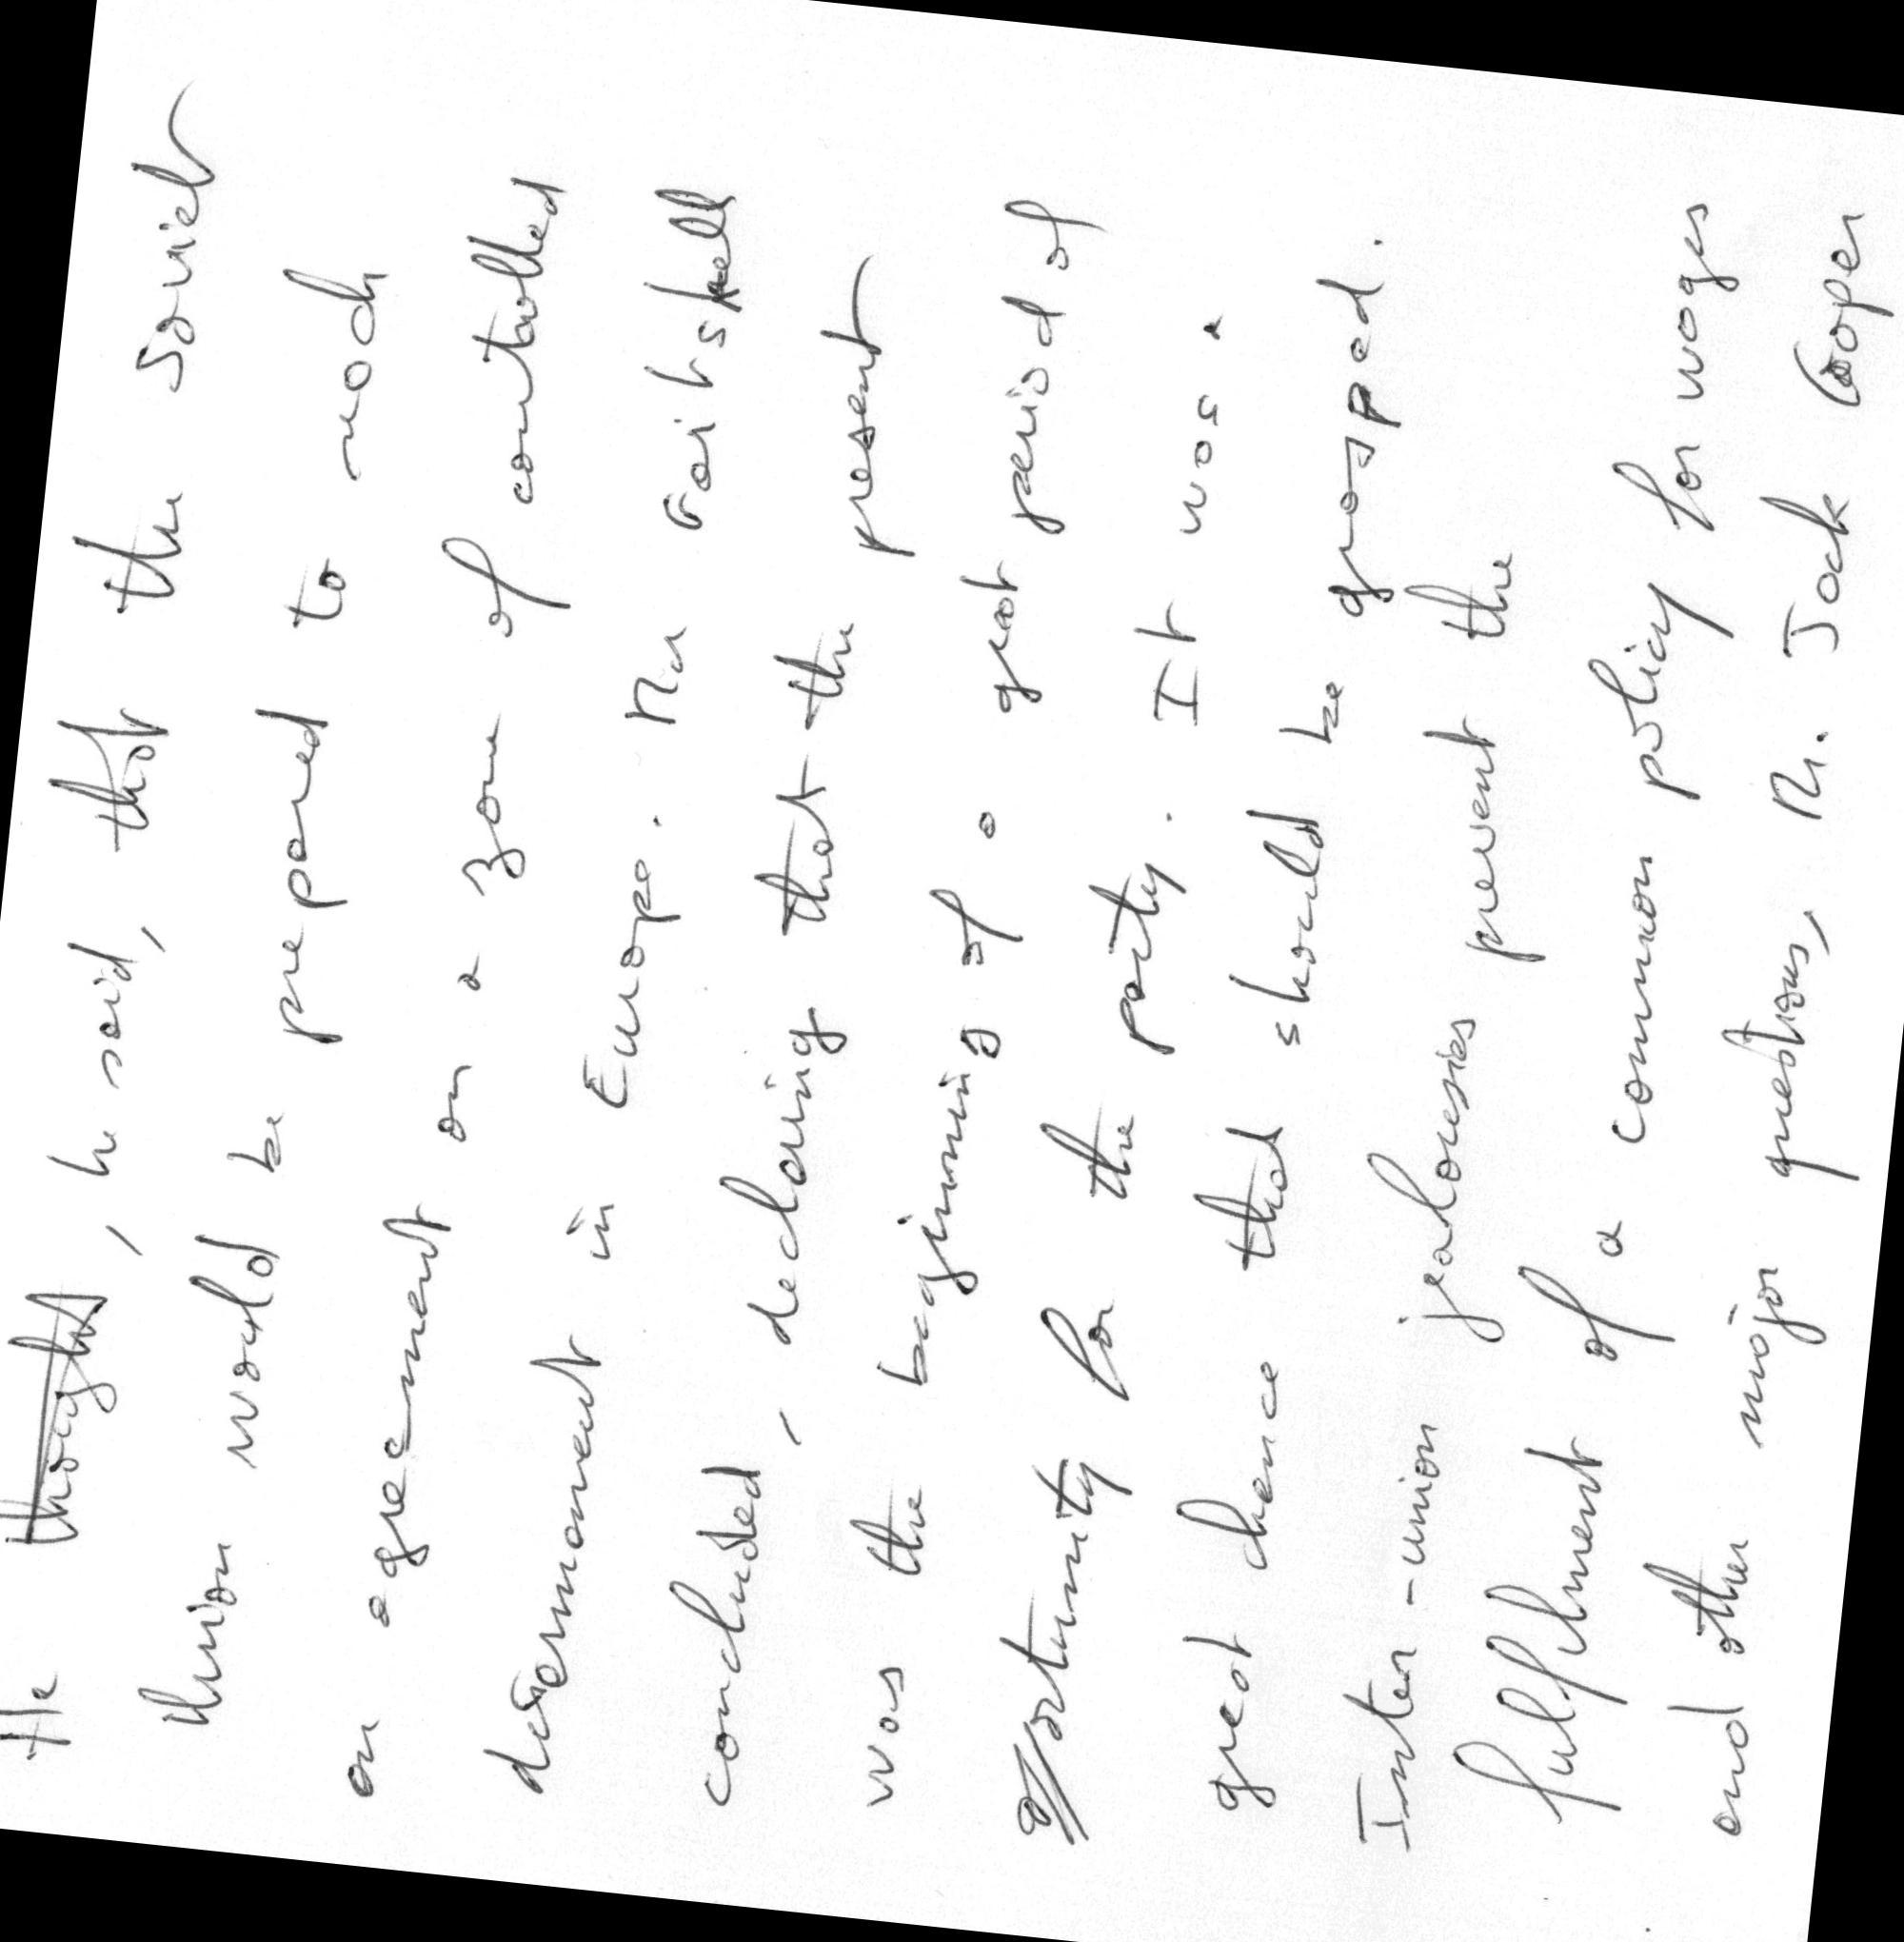 He thought, he said, that the Soviet
Union would be prepared to reach
an agreement on a zone of controlled
disarmament in Europe. Mr Gaitskell
concluded, declaring that the present
was the beginning of a great period of
opportunity for the party. It was a
great chance that should be grasped.
Inter-union jealousies prevent the
fulfilment of a common policy for wages
and other major questions, Mr. Jack Cooper